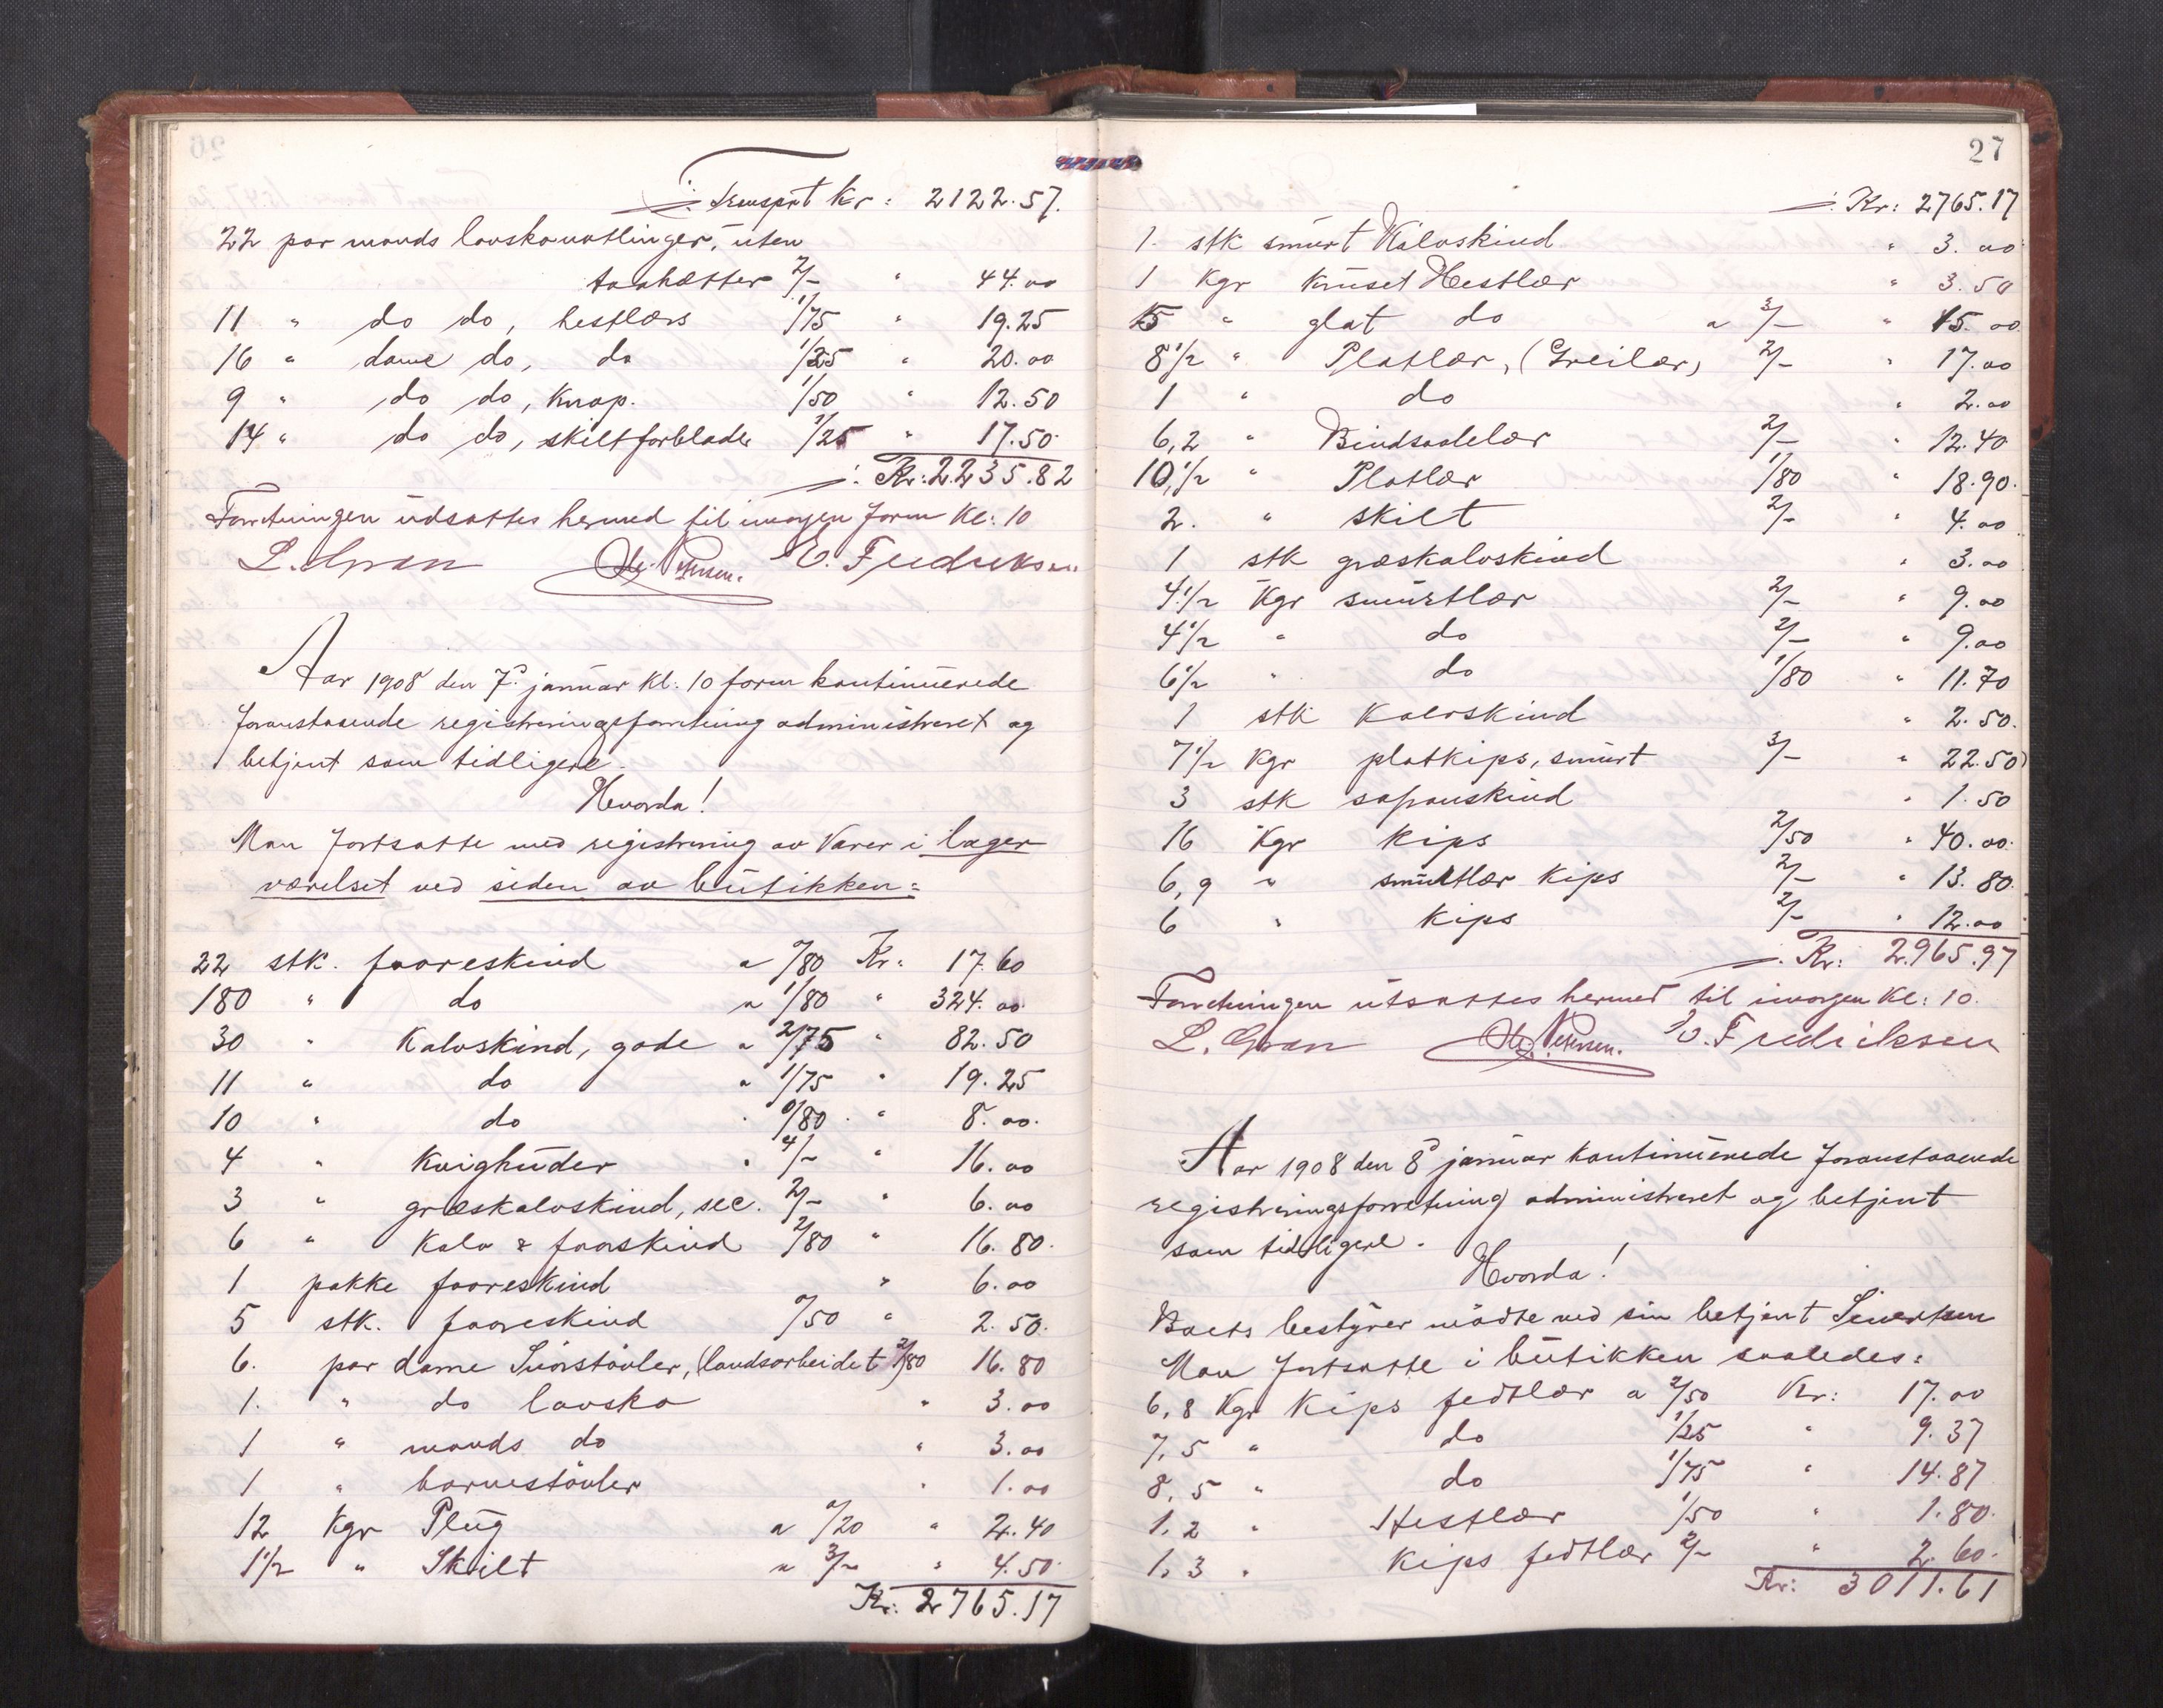 Transport Kr: 2122.57.
22 par mands lavskonatlinger, uten
taahætter 2/- " 44.00
11 " do do, hestlærs 1/75 " 19.25
16 " dame do, do 1/25 " 20.00
9 " do do, Knap. 1/50 " 12.50
14 " do do, skiltforblade 1/25 " 17.50
Kr: 2235.82
Forretningen udsattes hermed til imorgen form Kl: 10
L. Gran Petersen. E. Fredriksen
Aar 1908 den 7de januar kl. 10 form kontinuerede
foranstaaende registreringsforretning administreret og
betjent som tidligere.
Hvorda!
Man fortsatte med registrering av Varer i lager
værelset ved siden av butikken:
22 stk. faareskind a 0/80 Kr: 17.60
180 " do a 1/80 " 324.00
30 " Kalvskind, gode a 2/75 " 82.50
11 " do a 1/75 " 19.25
10 " do 0/80 " 8.00.
4 " Kvighuder 4/- " 16.00
3 " græskalvskind, sec. 2/- " 6.00
6 " Kalv & faarskind 2/80 " 16.80.
1 pakke faareskind " 6.00
5 stk. faareskind 0/50 " 2.50.
6. par dame Snørstøvler, (landsarbeidet) 2/80 16.80
1. " do lavsko " 3.00
1 " mands do " 3.00
1 " barnestøvler " 1.00
12 Kgr Plug a 0/20 " 2.40
1 1/2 " Skilt a 3/- " 4.50
Kr: 2765.17
27
Kr: 2765.17
1. stk smurt Kalvskind " 3.00
1 Kgr Kruset Hestlær " 3.50
15 " glat do a 3/- " 45.00
8 1/2 " Platlær, (Greilær) 2/- " 17.00
1 " do " 2.00
6,2 " Bindsaalelær 2/- " 12.40
10 1/2 " Platlær 1/80 " 18.90.
2. " skilt 2/- " 4.00
1 stk græskalvskind " 3.00
4 1/2 Kgr smurtlær 2/- " 9.00
4 1/2 " do 2/- " 9.00
6 1/2 " do 1/80 " 11.70
1 stk Kalvskind " 2.50.
7 1/2 Kgr platkips, smurt 3/- " 22.50
3 stk safianskind " 1.50
16 Kgr Kips 2/50 " 40.00.
6,9 " smurtlær Kips 2/- " 13.80.
6 " Kips 2/- " 12.00
Kr: 2965.97
Forretningen utsattes hermed til imorgen Kl: 10.
L. Gran Petersen. E. Fredriksen
Aar 1908 den 8de januar kontinuerede foranstaaende
registreringsforretning administreret og betjent
som tidligere.
Hvorda!
Boets bestyrer mødte ved sin betjent Sivertsen
Man fortsatte i butikken saaledes:
6,8 Kgr Kips fedtlær a 2/50 Kr: 17.00
7,5 " do 1/25 " 9.37
8,5 " do 1/75 " 14.87
1,2 " Hestlær 1/50 " 1.80.
1,3 " Kips fedtlær 2/- " 2.60.
Kr: 3011.61